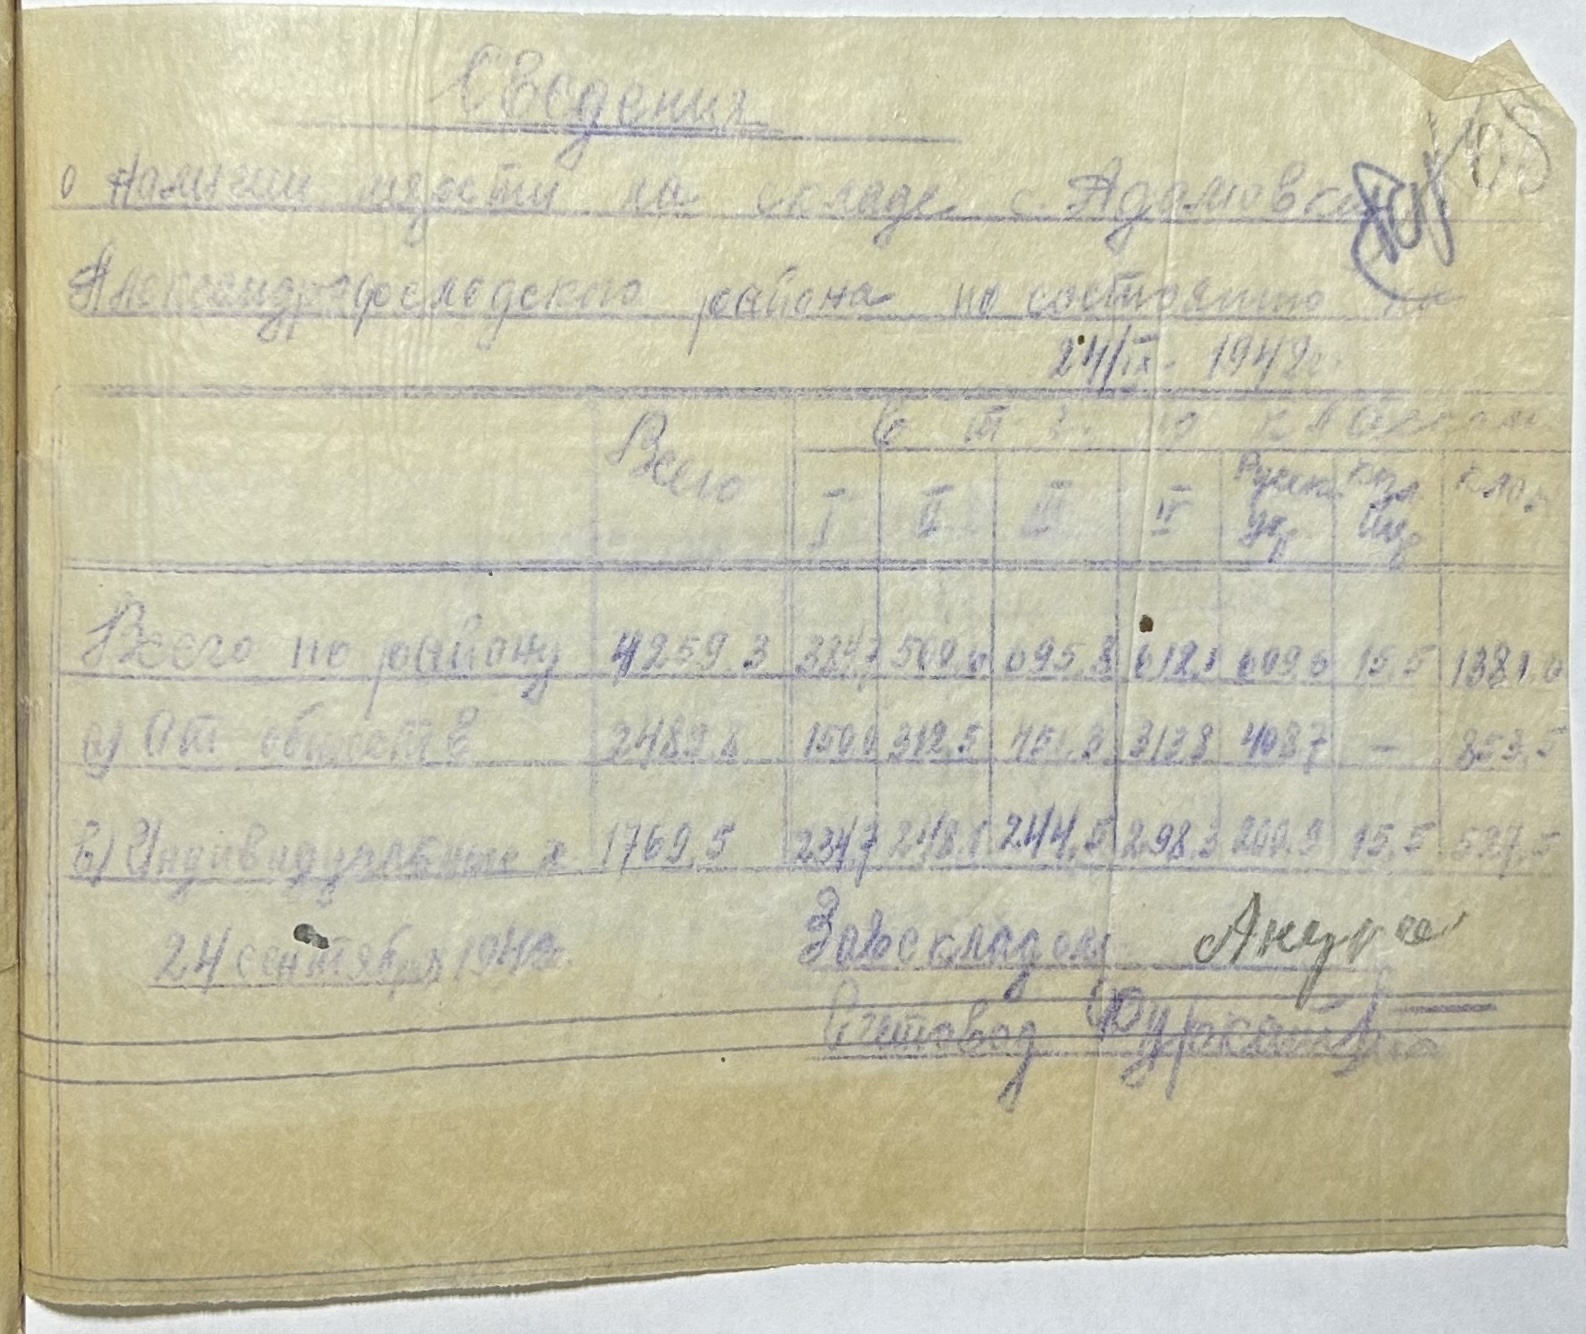 Сведения
о наличии шерсти на складе с. Адамовка
Александрфельдского района по состоянию на
24/IX - 1942 г.
Всего
I II III IV
Всего по району 4259.3 384,7 509.0 695.8 612.1 609.6 15.5 1381.0
а) От обществ 2489.8 150.0 312,5 451.3 313.8 408.7 — 853.5
в) Индивидуальных 1769.5 234,7 248.1 244.5 298.3 200.9 15.5 527.5
24 сентября 1942г. Завскладом
Счетовод